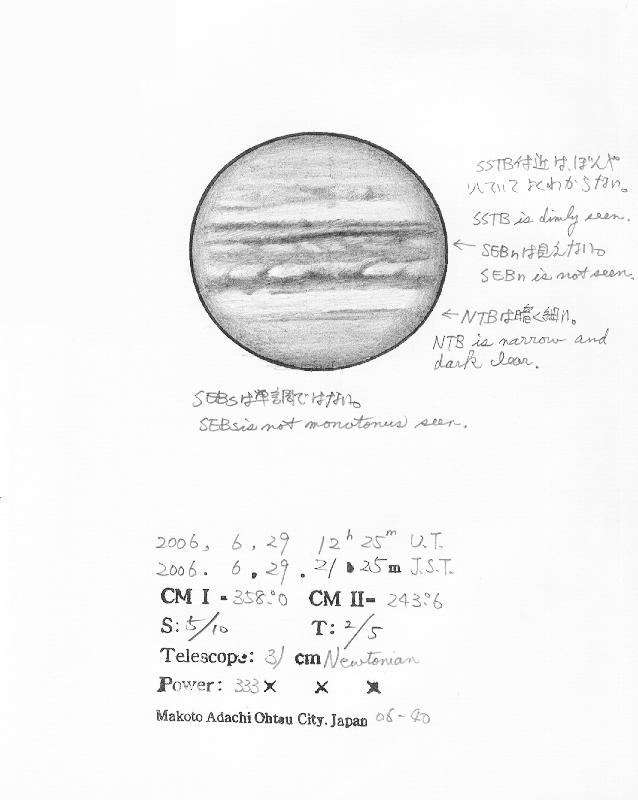 SSTB付近は、ぼんや
りしていてよくわからない。
SSTB is dimly seen.
← SEBnは見えない。
SEBn is not seen.
← NTBは暗く細い。
NTB is narrow and
dark clear.
SEBsは単調ではない。
SEBs is not monotonus seen.
2006, 6, 29 12h 25m U.T.
2006. 6. 29. 21 25m J.S.T.
CM I - 358.°0 CM II- 243.°6
S: 5/10 T: 2/5
Telescope: 31 cm Newtonian
Power: 333× × ×
Makoto Adachi Ohtsu City. Japan 06-40